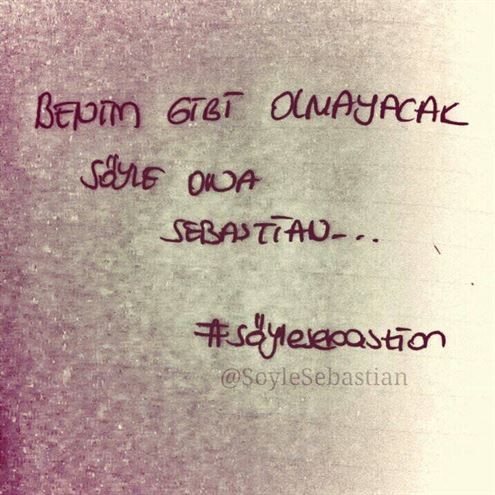 BENİM GİBİ OLMAYACAK
SÖYLE ONA
SEBASTİAN-...
#söylesebastian
@SoyleSebastian